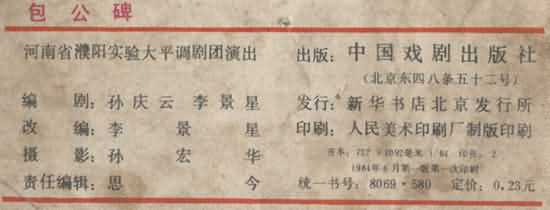 包公碑
河南省濮阳实验大平调剧团演出
编剧：孙庆云 李景星
改编：李景星
摄影：孙宏华
责任编辑：思今
出版：中国戏剧出版社
（北京东四八条五十二号）
发行：新华书店北京发行所
印刷：人民美术印刷厂制版印刷
开本：787×1092毫米 1/64 印张：2
1984年6月第一版第一次印刷
统一书号：8069·580 定价：0.23元